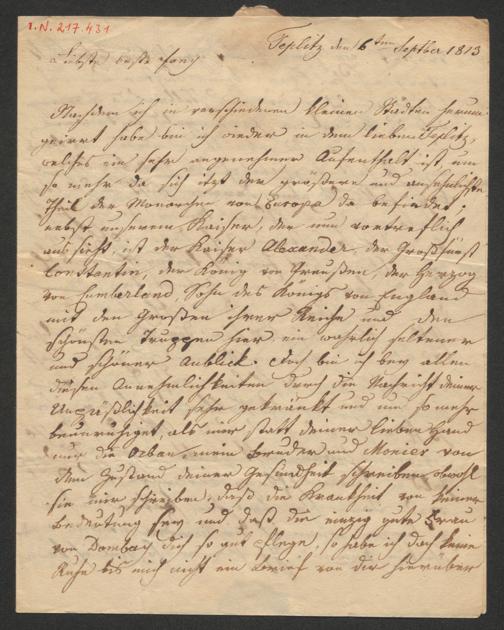 I.N. 217.431
Teplitz den 6ten Septber 1813
Liebste beste Fany
Nachdem ich in verschiedenen kleinen Städten herum
geirrt habe bin ich wieder in dem lieben Teplitz,
welches ein sehr angenehmer Aufenthalt ist um
so mehr da sich itzt der größere und ansehnlichste
Theil der Monarchen von Europa da befindet.
nebst unserem Kaiser, der nun vortreflich
aussieht, ist der Kaiser Alexander, der Großfürst
Constantin, der König von Preußen, der Herzog
von Cumberland, Sohn des Königs von England
mit den Großen ihrer Reiche und den
schönsten Truppen hier, ein wahrlich seltener
und schöner Anblick. Doch bin ich bey allen
diesen Annehmlichkeiten durch die Nachricht deiner
Unpäßlichkeit sehr gekränkt und um so mehr
beunruhiget, als mir statt deiner lieben Hand
nur die Orban, mein Bruder und Monier von
dem Zustand deiner Gesundheit schreiben obwohl
sie mir schreiben, daß die Krankheit von keiner
Bedeutung sey und daß die einzig gute Frau
von Dombay dich so gut pflege, so habe ich doch keine
Ruhe bis mich nicht ein Brief von dir hierüber